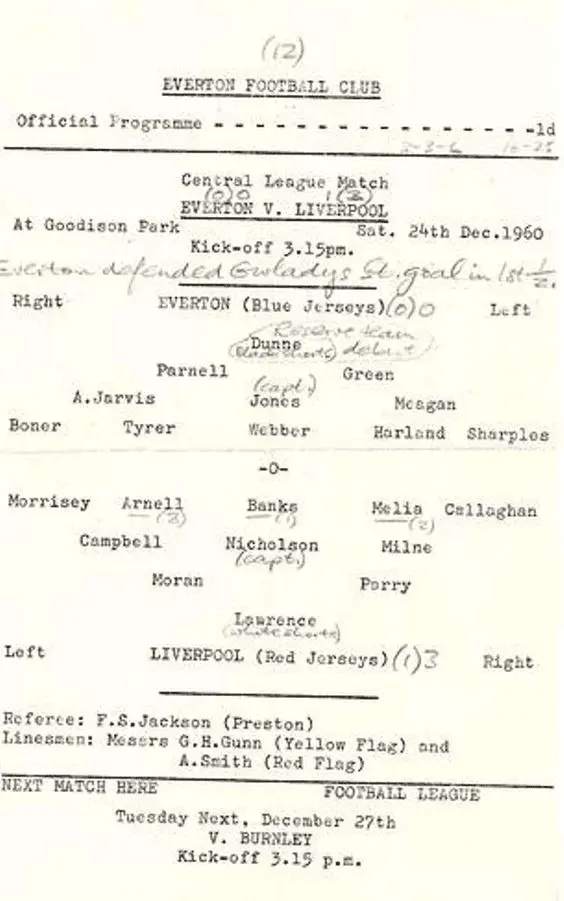 (12)
EVERTON FOOTBALL CLUB
Official Programme - - - - - - - - - - - - - - - - -1d
2-3-6 16-25
Central League Match
(0) 0 1 (3)
EVERTON V. LIVERPOOL
At Goodison Park Sat. 24th Dec.1960
Kick-off 3.15pm.
Everton defended Gwladys St. goal in 1st ½.
Right EVERTON (Blue Jerseys) (0) 0 Left
(Reserve team
Dunne
(black shorts) debut)
Parnell Green
(capt.)
A.Jarvis Jones Meagan
Boner Tyrer Webber Harland Sharples
-O-
Morrisey Arnell Banks Melia Callaghan
(3) (1) (2)
Campbell Nicholson Milne
(capt.)
Moran Parry
Lawrence
(white shorts)
Left LIVERPOOL (Red Jerseys) (1) 3 Right
Referee: F.S.Jackson (Preston)
Linesmen: Messrs G.H.Gunn (Yellow Flag) and
A.Smith (Red Flag)
NEXT MATCH HERE FOOTBALL LEAGUE
Tuesday Next, December 27th
V. BURNLEY
Kick-off 3.15 p.m.